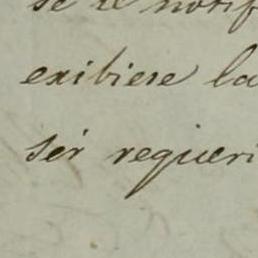 se le notif
exibiese la
ser requeri